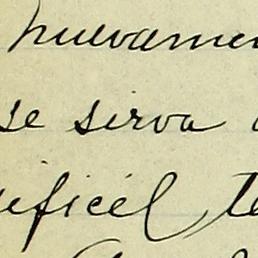 nuevamen
se sirva
ificil te